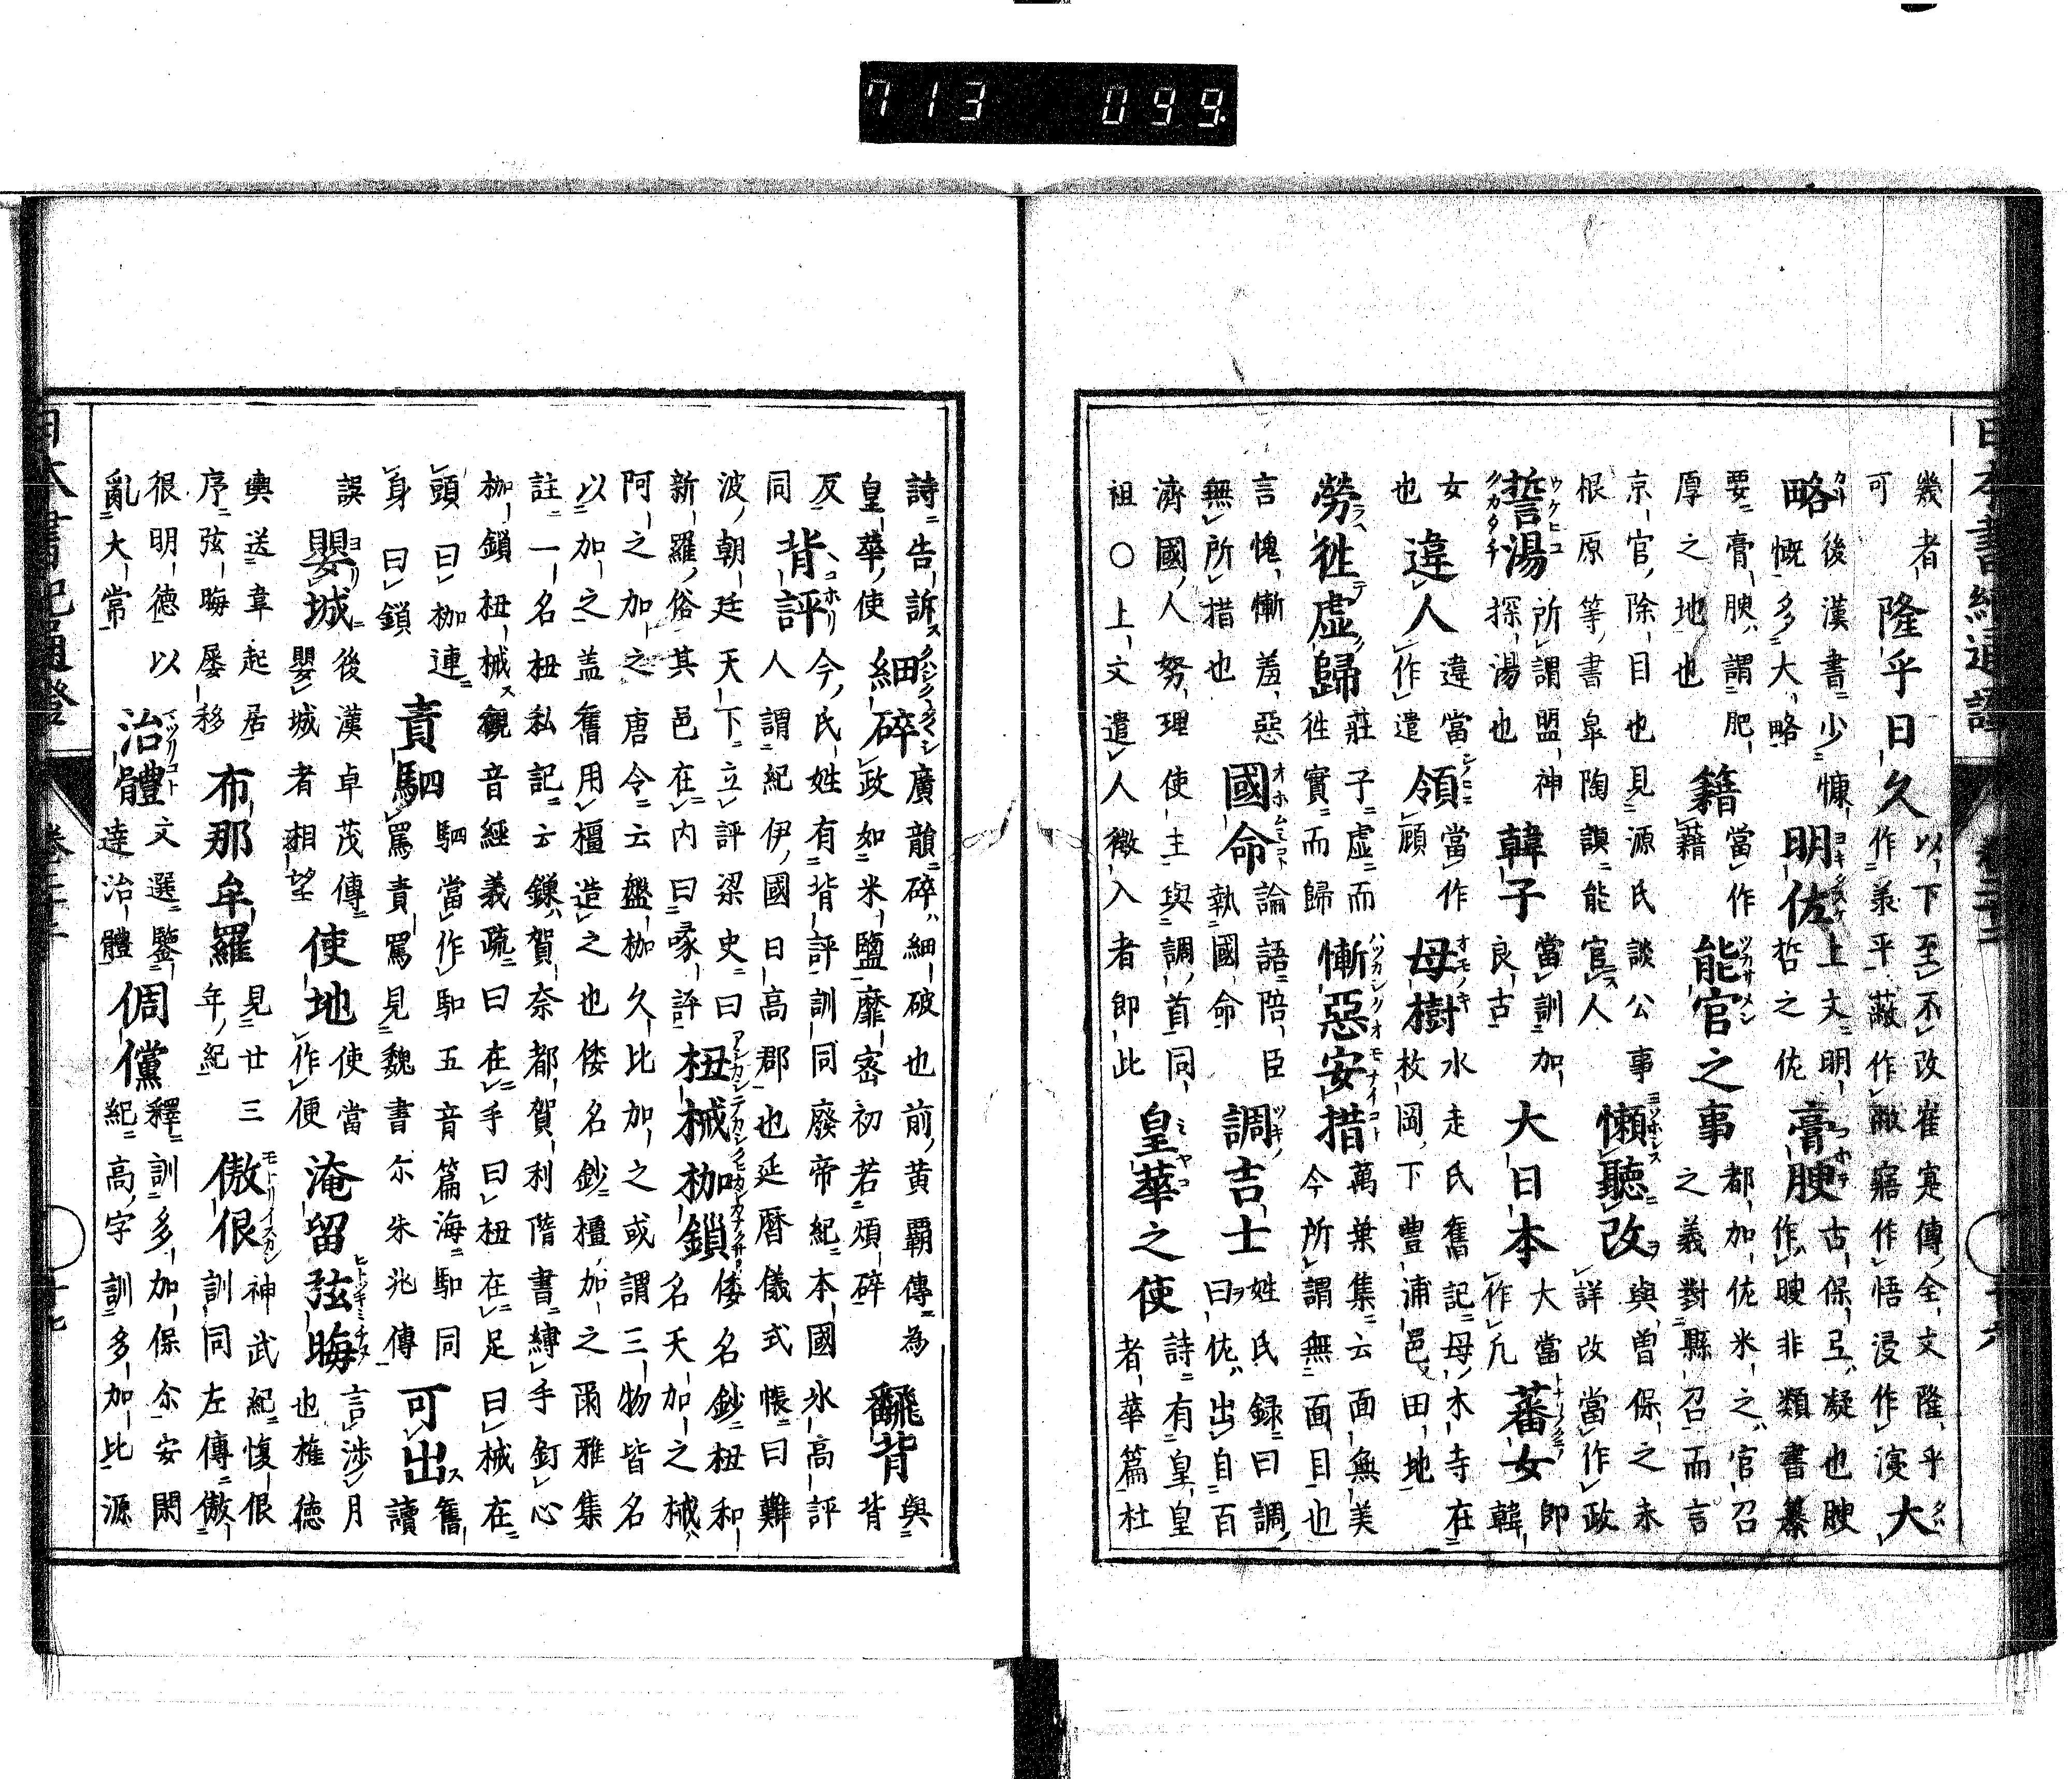 713 099
日本書紀通證
幾者
可
隆乎日久
以下至不改崔寔傳全文隆乎
作義平蔽作敝寤作悟浸作演
大
略
後漢書少慷
慨多大略
明佐
上文明
哲之佐
膏腴
古保呂凝也腴
作腴非類書纂
要膏腴謂肥
厚之地也
籍
當作
藉
能官之事
都加佐米之官召
之義對縣召而言
京官除目也見源氏談公事
根原等書皐陶謨能官人
懶聽改
與曽保之未
詳改當作政
誓湯
所謂盟神
探湯也
韓子
當訓加
良古
大日本
大當
作凡
蕃女
即
韓
女
也
違人
違當
作遣
領
當作
顧
母樹
水走氏舊記母木寺在
枚岡下豊浦邑田地
勞往虚歸
莊子虚而
往實而歸
慚惡安措
萬葉集云面無美
今所謂無面目也
言愧慚羞惡
無所措也
國命
論語陪臣
執國命
調吉士
姓氏録曰調
曰佐出自百
濟國人努理使主與調首同
祖○上文遣人徴入者即此
皇華之使
詩有皇皇
者華篇杜
詩告訴
皇華使
細碎
廣韻碎細破也前黄覇傳為
政如米鹽靡密初若煩碎
飜背
與
背
反
同
背評
今氏姓有背評訓同廢帝紀本國氷高評
人謂紀伊國日高郡也延暦儀式帳曰難
波朝廷天下立評梁史曰
新羅俗其邑在内曰㖨評
杻械枷鎖
倭名鈔杻和
名天加之械
阿之加之唐令云盤枷久比加之或謂三物皆名
以加之盖舊用檀造之也倭名鈔檀加之爾雅集
註一名杻私記云鎌賀奈都賀利階書縛手釘心
枷鎖杻械觀音經義疏曰在手曰杻在足曰械在
頭曰枷連
身曰鎖
責駟
駟當作馹五音篇海馹同
罵責罵見魏書尓朱兆傳
可出
舊
讀
誤
嬰城
後漢卓茂傳
嬰城者相望
使地
使當
作便
淹留弦晦
言渉月
也権徳
輿送韋起居
序弦晦屡移
布那牟羅
見廿三
年紀
傲佷
神武紀愎佷
訓同左傳傲
很明徳以
亂大常
治體
文選鑒
達治體
倜儻
釋訓多加保尓安閑
紀高字訓多加比源